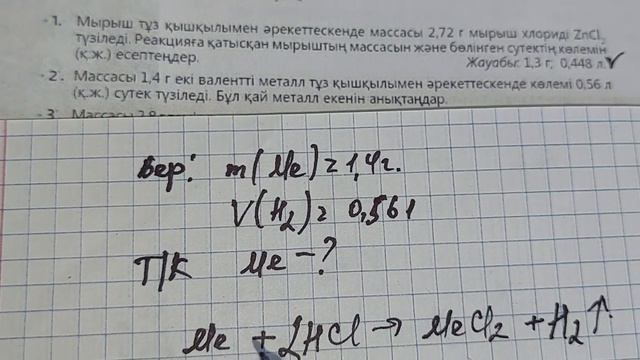 1. Мырыш тұз қышқылымен әрекеттескенде массасы 2,72 г мырыш хлориді ZnCl₂
түзіледі. Реакцияға қатысқан мырыштың массасын және бөлінген сутектің көлемін
(қ.ж.) есептеңдер. Жауабы: 1,3 г; 0,448 л
2. Массасы 1,4 г екі валентті металл тұз қышқылымен әрекеттескенде көлемі 0,56 л
(қ.ж.) сутек түзіледі. Бұл қай металл екенін анықтаңдар.
3. Массасы
Бер: m(Me) = 1,4г.
V(H₂) = 0,56л
Т/К Me - ?
Me + 2HCl → MeCl₂ + H₂↑